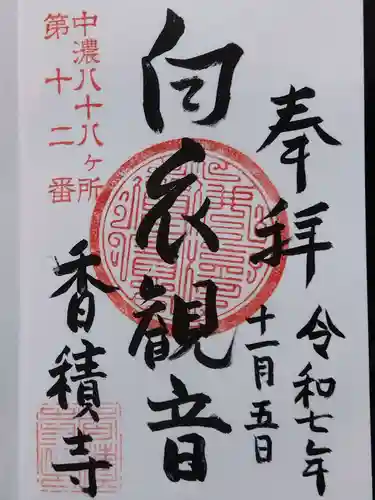 奉拝
令和七年
十一月五日
白衣観音
中濃八十八ヶ所
第十二番
香積寺